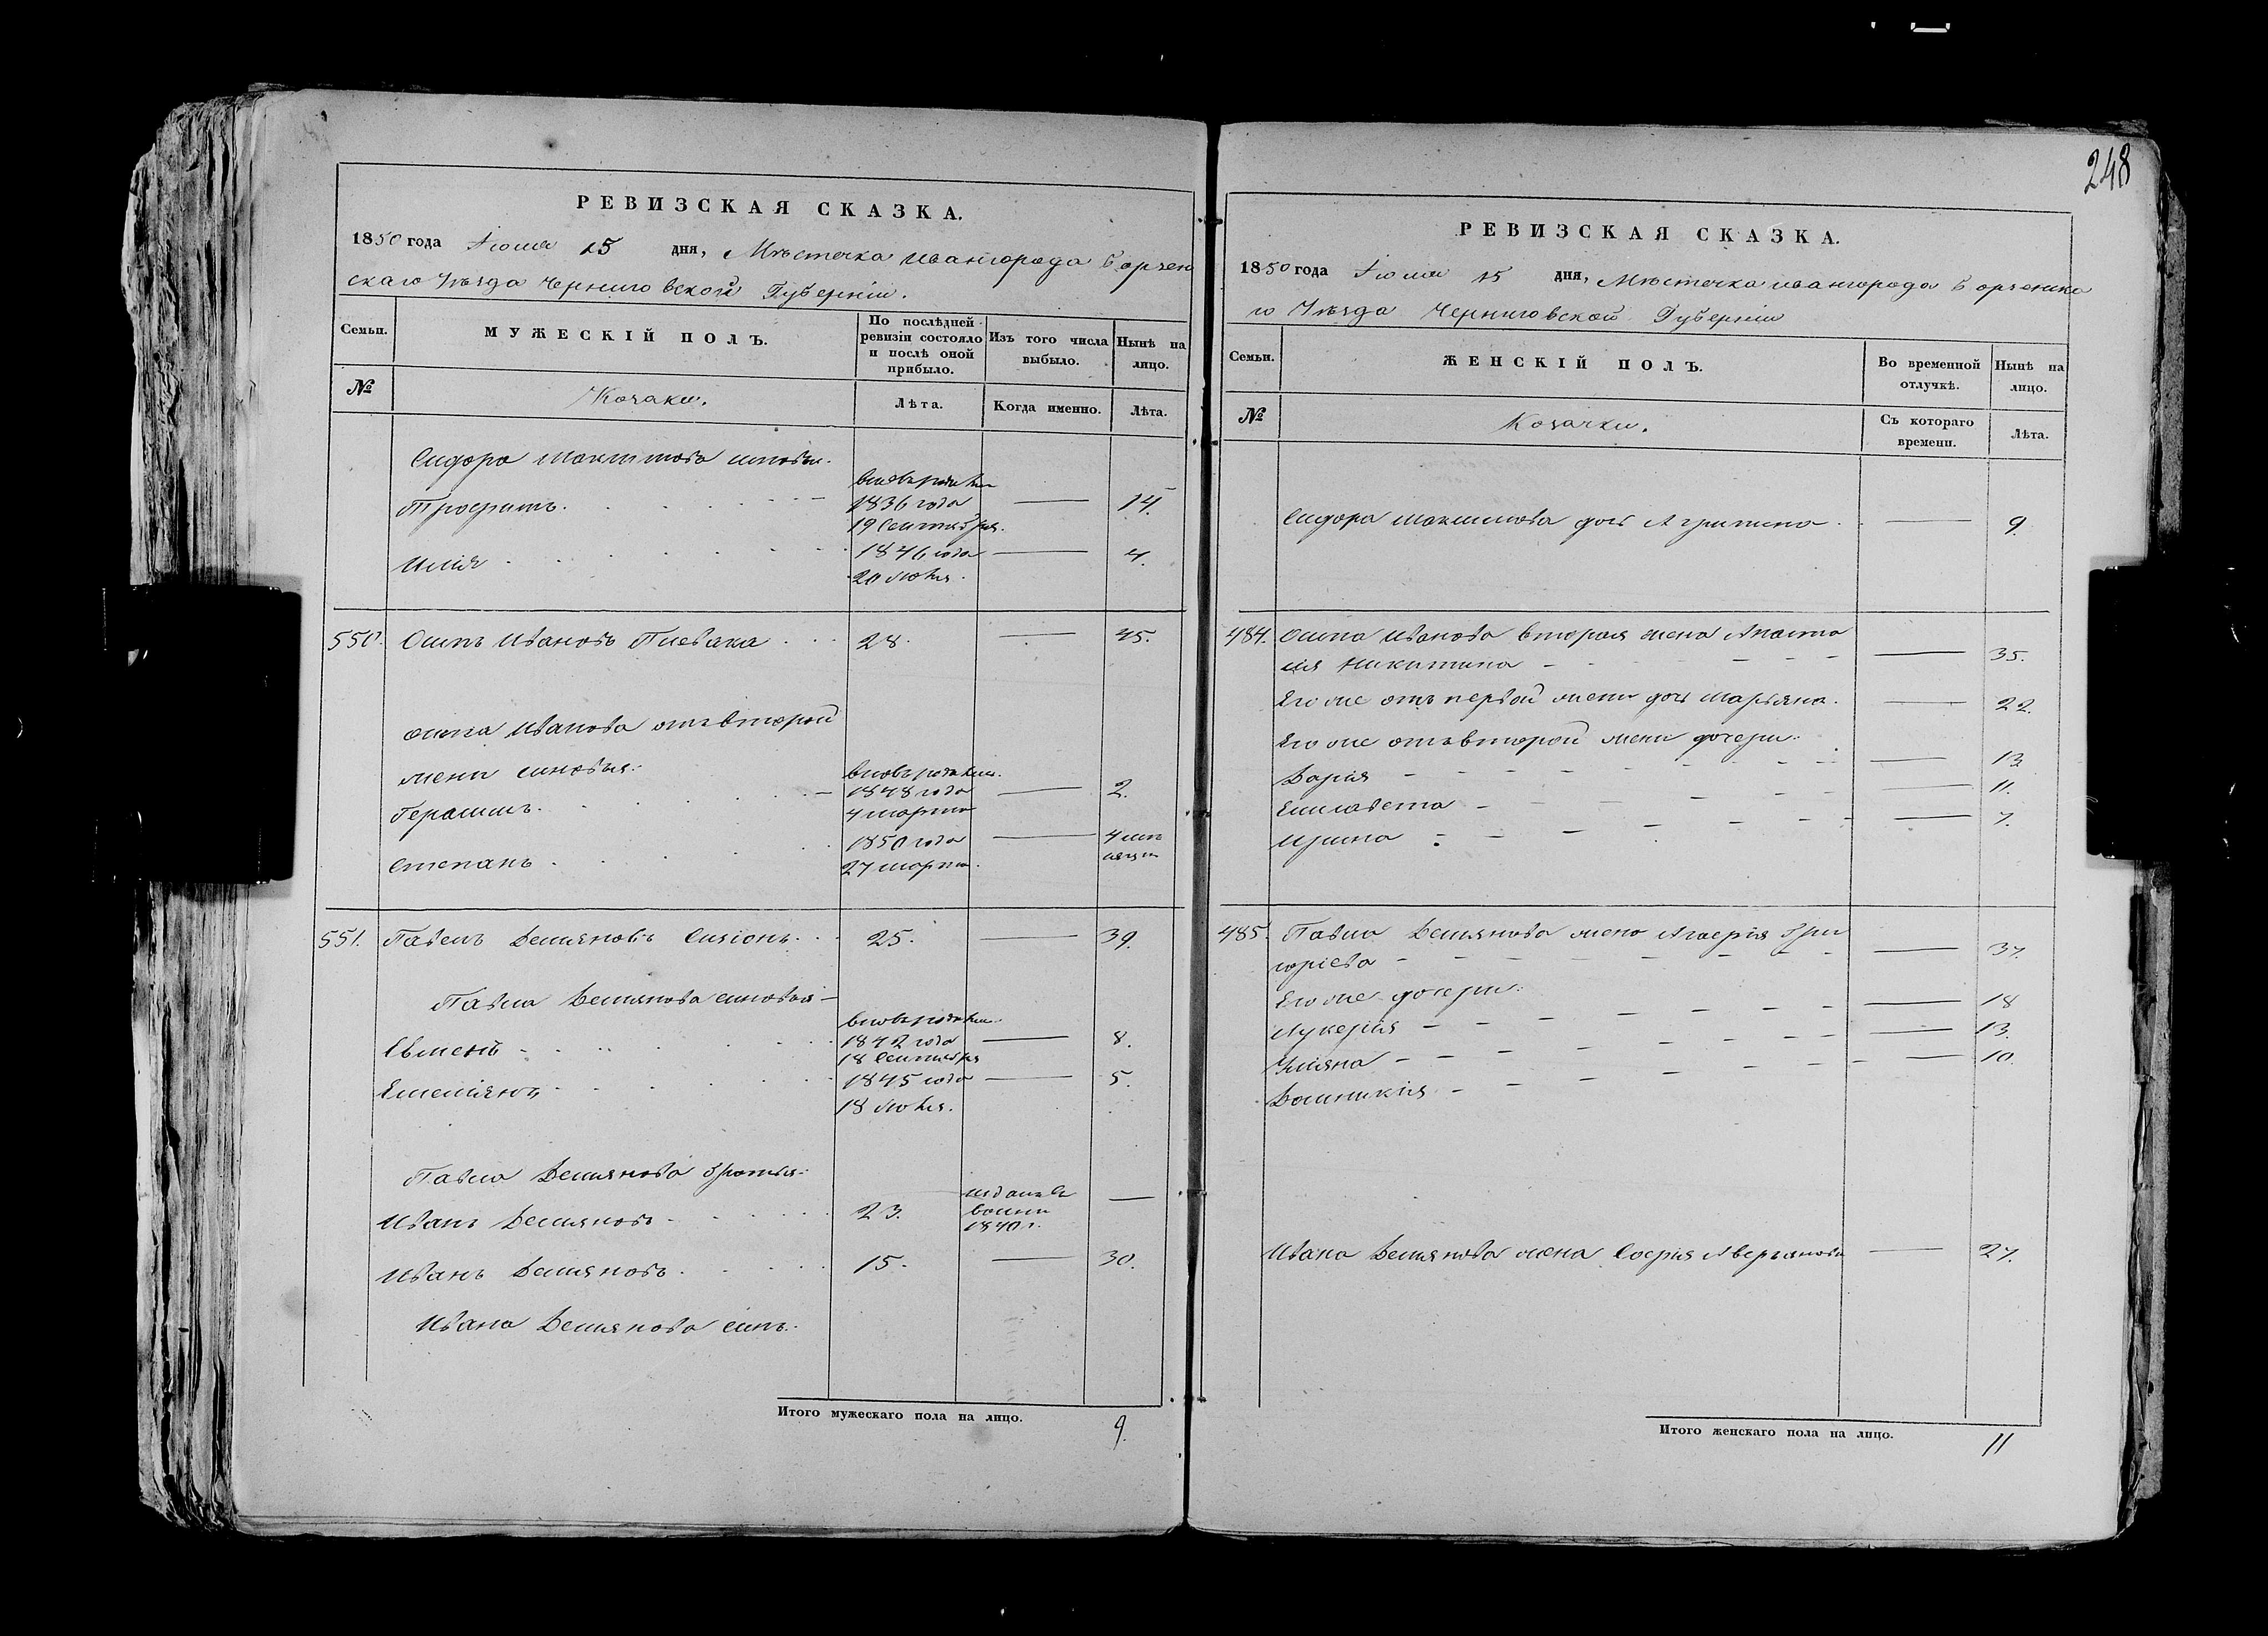 248
РЕВИЗСКАЯ СКАЗКА.
1850 года Іюля 15 дня, Мѣстечка Ивангорода Борзен
скаго Уѣзда Черниговской Губерніи.
Семьи.
МУЖЕСКІЙ ПОЛЪ.
По послѣдней
ревизіи состояло
и послѣ оной
прибыло.
Изъ того числа
выбыло.
Нынѣ на
лицо.
№
Козаки.
Лѣта.
Когда именно.
Лѣта.
Сидора Максимова синовья.
вновь рожден
Трофимъ. 1836 года — 14.
19 Сентября.
Илія 1846 года — 4.
20 Июля.
550. Осипъ Ивановъ Плевака 28. — 45.
Осипа Иванова отъ второй
жены синовья: вновь рожден.
Герасимъ. 1848 года — 2.
4 марта
1850 года — 4 мѣ
Степанъ. 27 марта. сяцы
551. Павелъ Демяновъ 25. — 39.
Павла Демянова синовья
вновь рожден.
Евменъ 1842 года — 8.
18 Сентября
Емеліянъ 1845 года — 5.
18 Июля.
Павла Демянова братья:
Иванъ Демяновъ. 23. —
1840 г.
Иванъ Демяновъ. 15. — 30.
Ивана Демянова синъ.
Итого мужескаго пола на лицо. 9.
РЕВИЗСКАЯ СКАЗКА.
1850 года Іюля 15 дня, Мѣстечка Ивангорода Борзенска
го Уѣзда Черниговской Губерніи
Семьи.
ЖЕНСКІЙ ПОЛЪ.
Во временной
отлучкѣ.
Нынѣ на
лицо.
№
Козачки.
Съ котораго
времени.
Лѣта.
Сидора Максимова дочь Агрипина. — 9.
484. Осипа Иванова вторая жена Анаста
сія Никитина — 35.
Его же отъ первой жены дочь Марьяна. — 22.
Его же отъ второй жены дочери:
Дарія — 13
Елисавета — 11.
Ирина — 7.
485. Павла Демянова жена Агафія Гри
горіева — 37.
Его же дочери:
Лукерія — 18
Уліяна — 13.
Домникія — 10.
Ивана Демянова жена Софія Аверьянова — 27.
Итого женскаго пола на лицо. 11